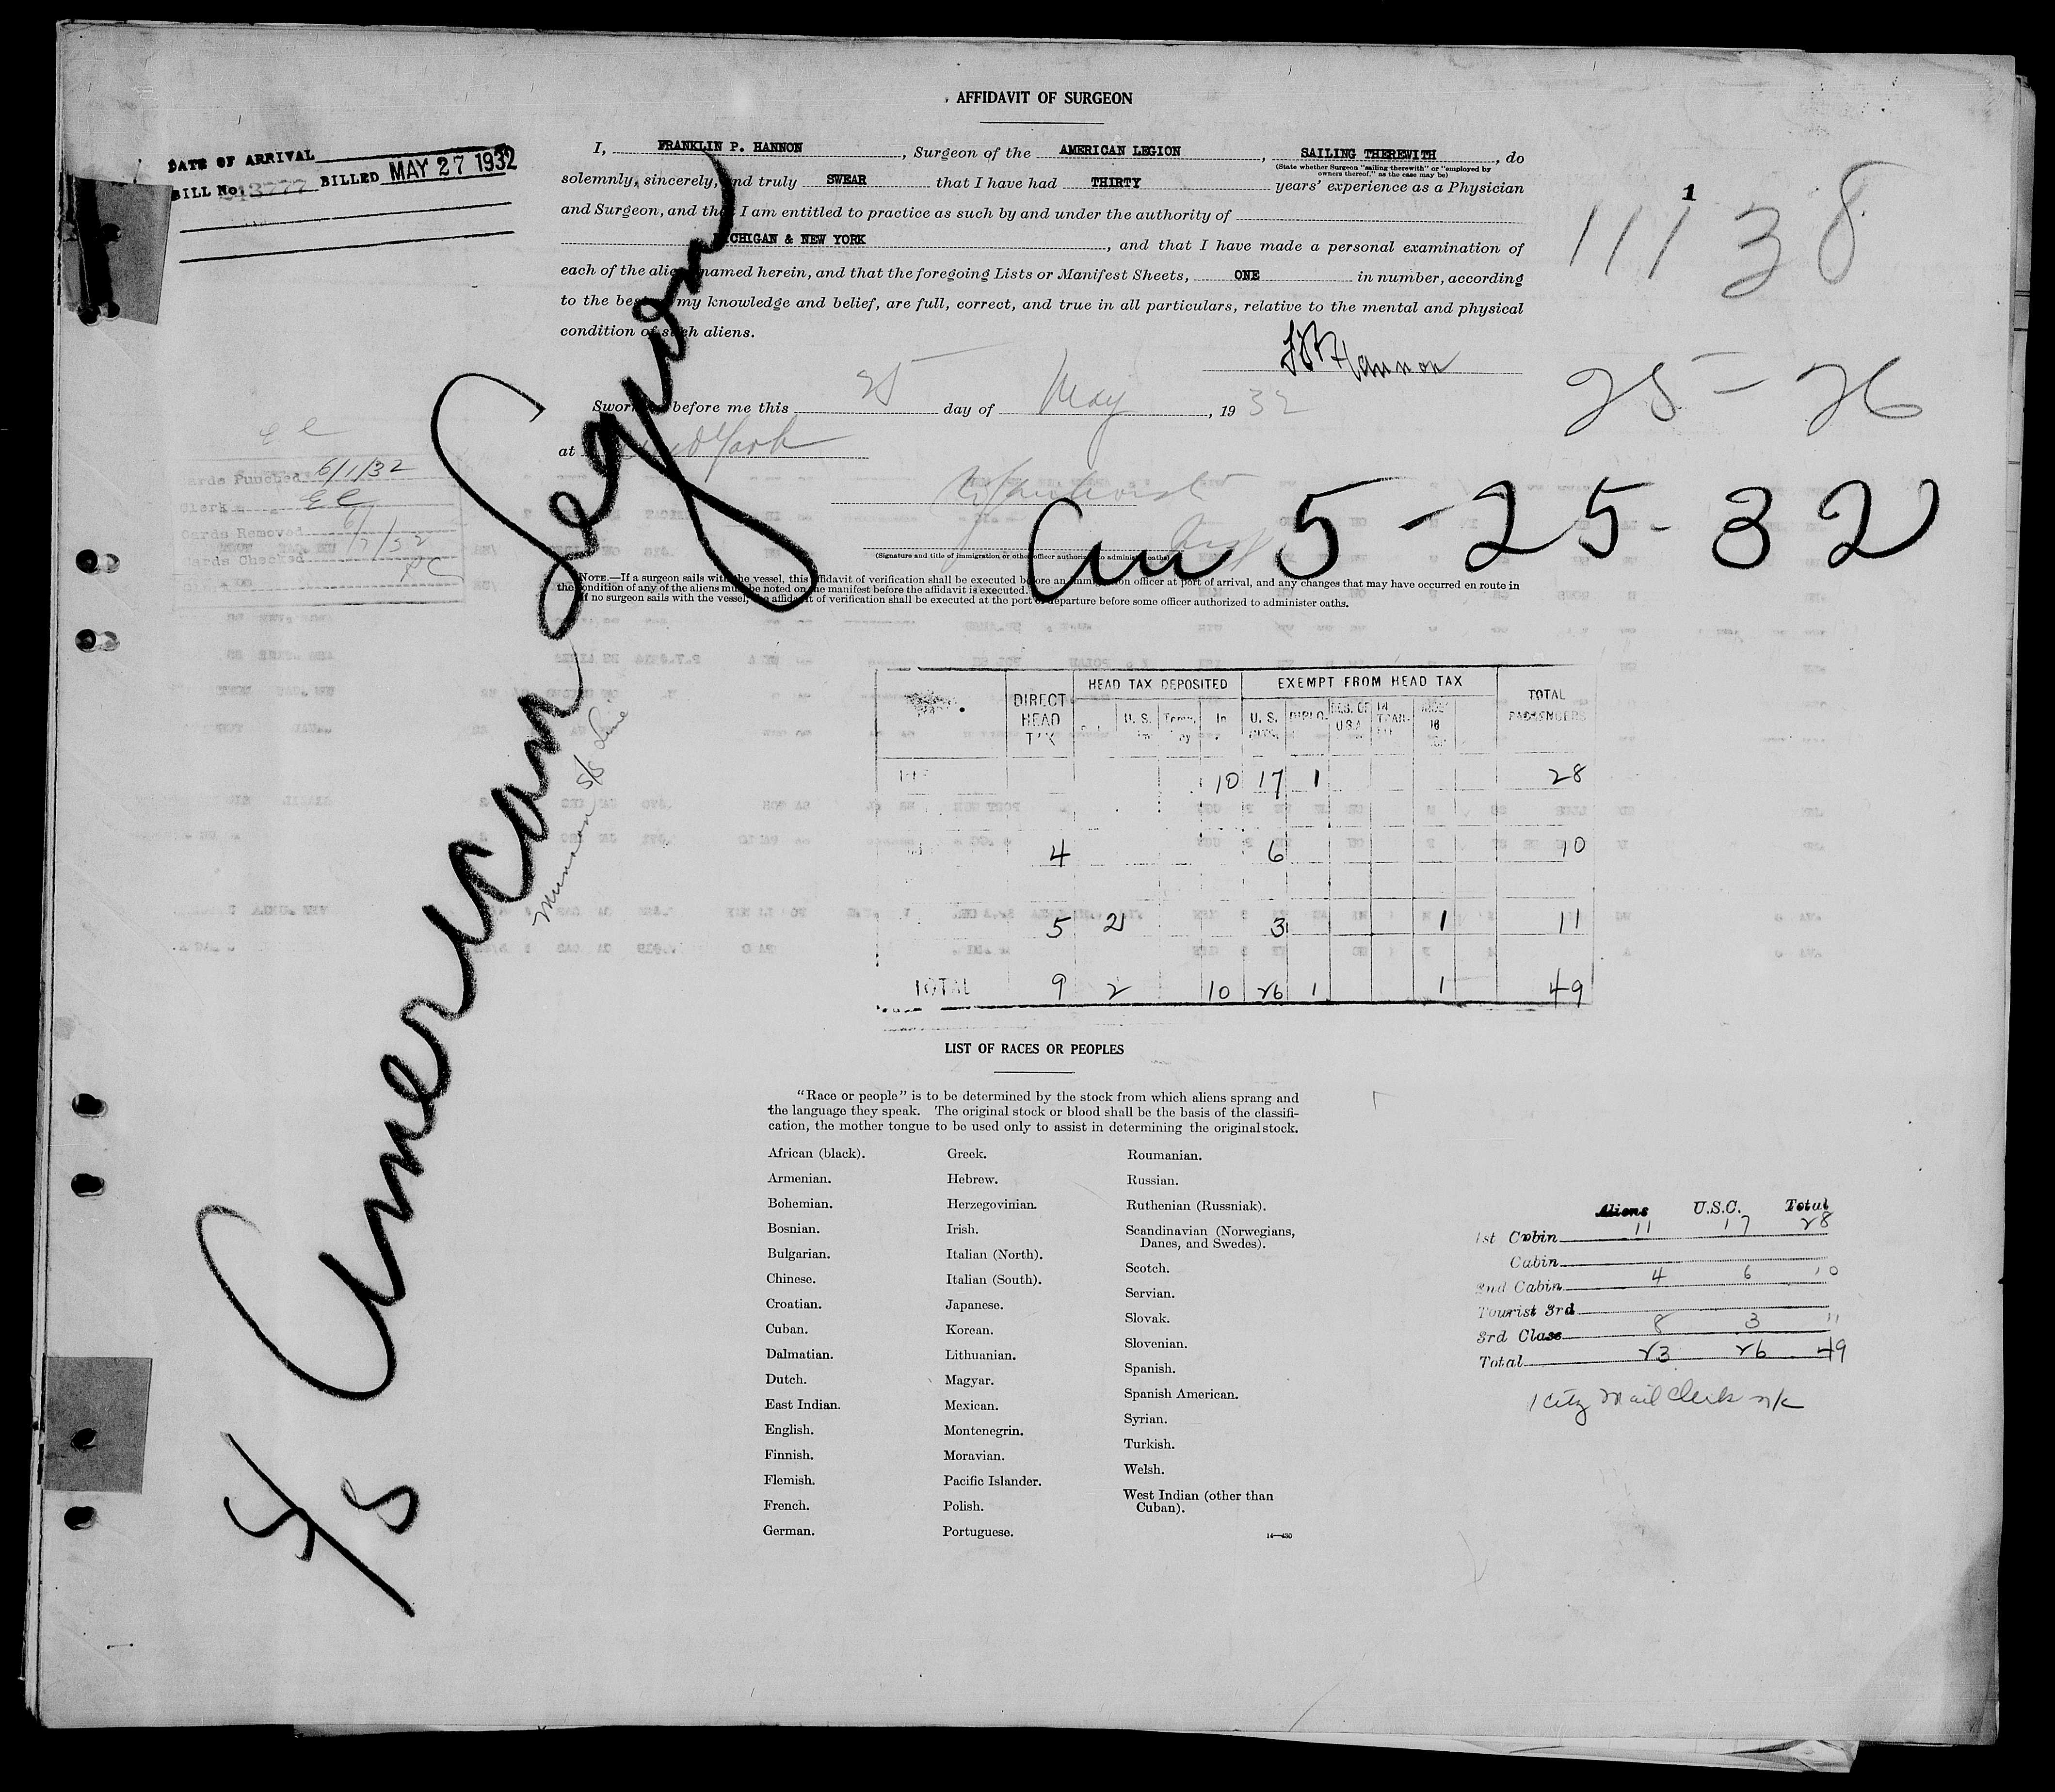 AFFIDAVIT OF SURGEON
DATE OF ARRIVAL
BILL No. 13777 BILLED MAY 27 1932
I, FRANKLIN P. HANNON, Surgeon of the AMERICAN LEGION, SAILING THEREWITH, do
(State whether Surgeon "sailing therewith" or "employed by owners thereof," as the case may be)
solemnly, sincerely, and truly SWEAR that I have had THIRTY years' experience as a Physician
and Surgeon, and that I am entitled to practice as such by and under the authority of
MICHIGAN & NEW YORK, and that I have made a personal examination of
each of the aliens named herein, and that the foregoing Lists or Manifest Sheets, ONE in number, according
to the best of my knowledge and belief, are full, correct, and true in all particulars, relative to the mental and physical
condition of such aliens.
1
11138
F P Hannon
25 - 26
Sworn before me this 25 day of May, 1932
at New York
Arr 5-25-32
(Signature and title of immigration or other officer authorized to administer oaths)
NOTE.—If a surgeon sails with the vessel, this affidavit of verification shall be executed before an immigration officer at port of arrival, and any changes that may have occurred en route in
the condition of any of the aliens must be noted on the manifest before the affidavit is executed.
If no surgeon sails with the vessel, the affidavit of verification shall be executed at the port of departure before some officer authorized to administer oaths.
E C
Cards Punched 6/1/32
Clerk E C
Cards Removed 6/7/32
Cards Checked PC
S/S American Legion
Munson S/S Line
DIRECT HEAD TAX HEAD TAX DEPOSITED EXEMPT FROM HEAD TAX TOTAL PASSENGERS
U. S. In U. S. DIPLO. RES. OF U.S.A. IN TRAN- 16
10 17 1 28
4 6 10
5 2 3 1 11
TOTAL 9 2 10 26 1 1 49
LIST OF RACES OR PEOPLES
"Race or people" is to be determined by the stock from which aliens sprang and
the language they speak. The original stock or blood shall be the basis of the classifi-
cation, the mother tongue to be used only to assist in determining the original stock.
African (black).
Armenian.
Bohemian.
Bosnian.
Bulgarian.
Chinese.
Croatian.
Cuban.
Dalmatian.
Dutch.
East Indian.
English.
Finnish.
Flemish.
French.
German.
Greek.
Hebrew.
Herzegovinian.
Irish.
Italian (North).
Italian (South).
Japanese.
Korean.
Lithuanian.
Magyar.
Mexican.
Montenegrin.
Moravian.
Pacific Islander.
Polish.
Portuguese.
Roumanian.
Russian.
Ruthenian (Russniak).
Scandinavian (Norwegians,
Danes, and Swedes).
Scotch.
Servian.
Slovak.
Slovenian.
Spanish.
Spanish American.
Syrian.
Turkish.
Welsh.
West Indian (other than
Cuban).
14—430
Aliens U.S.C. Total
1st Cabin 11 17 28
Cabin
2nd Cabin 4 6 10
Tourist 3rd
3rd Class 8 3 11
Total 23 26 49
1 City Mail Clerk n/c